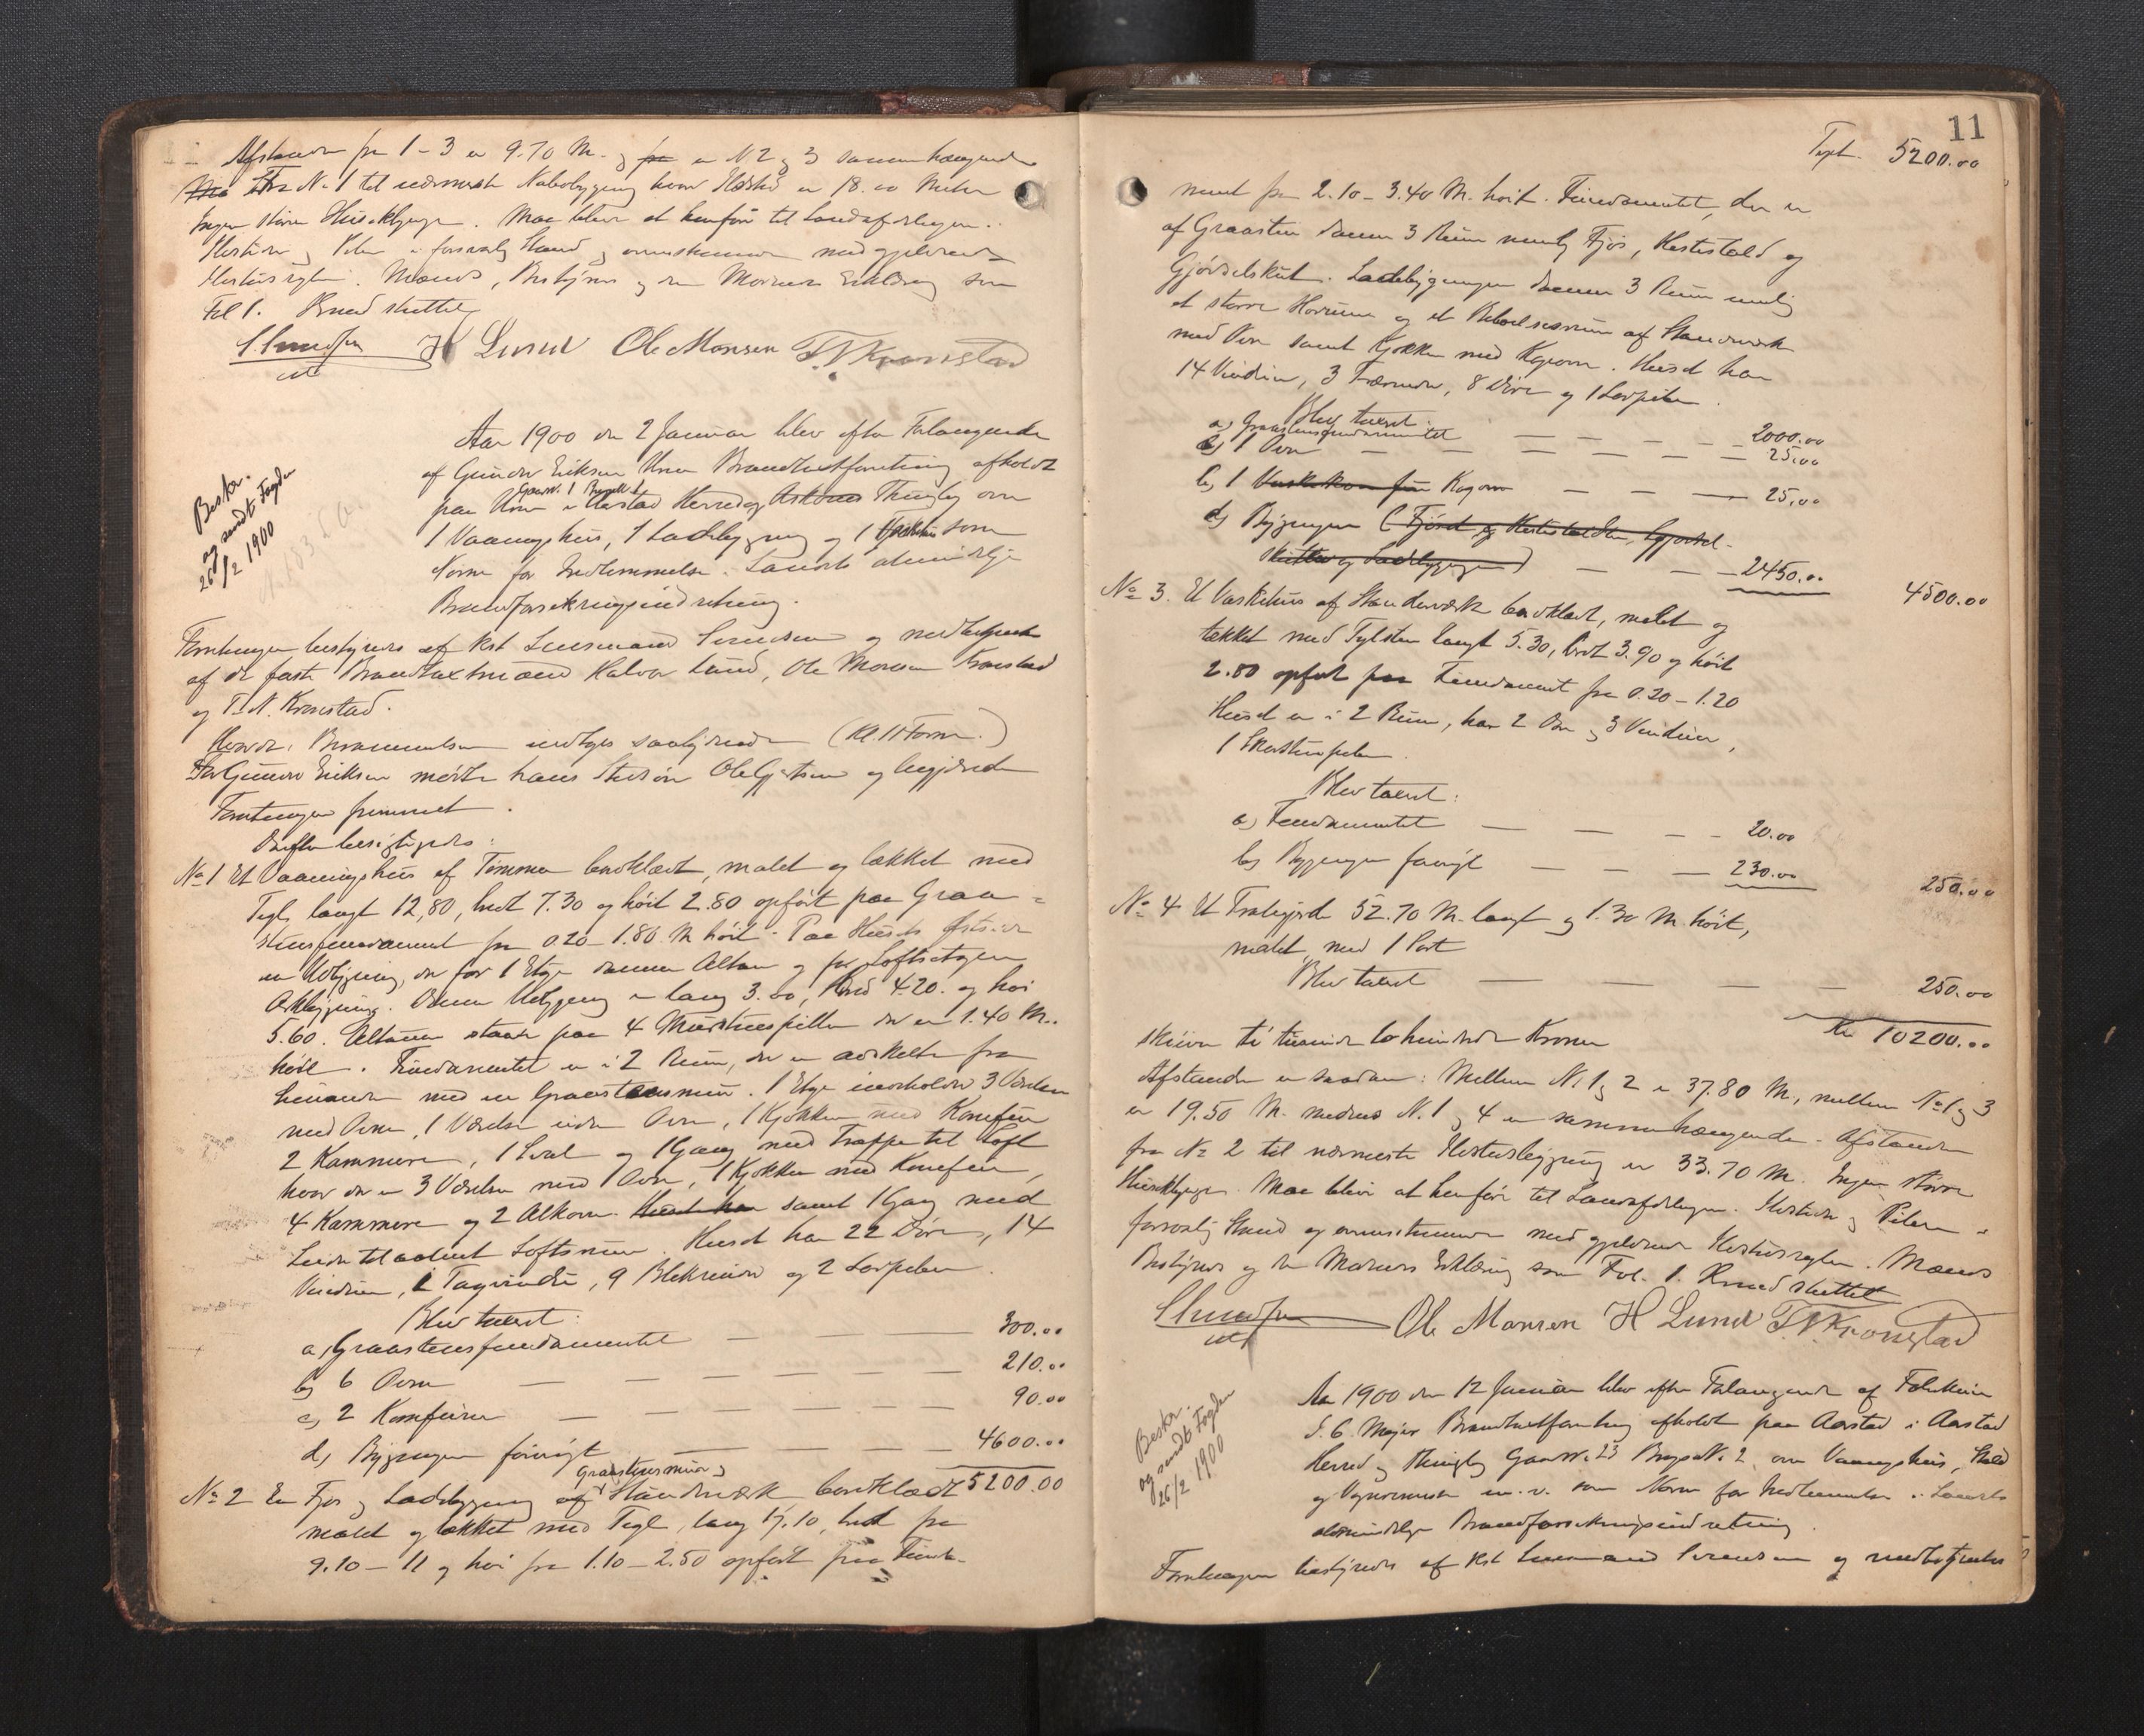 Afstanden fra 1-3 er 9.70 M. og er N 2 og 3 sammenhængende
Fra N. 1 til nærmeste Nabobygning hvor Ildsted er 18.00 Meter
Ingen større Huseklynge. Maa blive at henføre til Landsafdelingen.
Ildsteder og Piber i forsvarlig Stand og overensstemmende med gjældende
Ildstedsregler. Mænds, Bestyrers og den Modernes Erklæring som
Fol 1. Kvæd sluttet
H Lund Ole Monsen T. N. Kronstad
Aar 1900 den 2 Januar blev efter Forlangende
af Gunder Eriksen Brandtaxtforretning afholdt
Gaardn. 1 Brugsn. 1
paa i Aarstad Herred og Thinglag over
1 Vaaningshus, 1 Ladebygning og 1 Vaskehus som
Norm for Indlemmelse i Landets almindelige
Brandforsikringsindretning.
Beskr.
og sendt Fogden
26/2 1900
Forretningen bestyredes af kst Lensmand og medbetjentes
af de faste Brandtaxtmænd Halvor Lund, Ole Monsen Kronstad
og T. N. Kronstad.
(Kl. 11 Form.)
For Gunder Eriksen mødte hans Stedsøn Ole Gjertsen og begjærede
Forretningen fremmet.
Derefter besigtigedes:
No 1 Et Vaaningshus af Tømmer bordklædt, malet og tækket med
Tegl, langt 12,80, bredt 7.30 og høit 2.80 opført paa Graa-
stensfundament fra 0.20-1.80 M høit. Paa Husets Østside
en Udbygning, der for 1 Etage danner Altan og for Loftsetagen
Arkbygning. Denne Udbygning er lang 3.00, bred 4.20. og høi
5.60. Altanen staar paa 4 Murstenspiller der er 1.40 M.
høie. Fundamentet er i 2 Rum, der er adskilte fra
hinanden med en Graastensmur. 1 Etage indeholder 3 Værelser
med Ovne, 1 Værelse uden Ovn, 1 Kjøkken med Komfur
2 Kammere, 1 Sval og 1 Gang med Trappe til Loft
hvor der er 3 Værelser med 1 Ovn, 1 Kjøkken med Komfur,
4 Kammere og 2 Alkover. Huset har samt 1 Gang med
Leider til aabent Loftsrum. Huset har 22 Døre, 14
Vinduer, 2 Tagvinduer, 9 Blikrender og 2 Lodpiber.
Blev taxeret:
a, Graastensfundamentet — — 300.00
b, 6 Ovne — — — — — 210.00
c, 2 Komfurer — — — — — 90.00
d, Bygningen forøvrigt — — — 4600.00
5200.00
Graastensmur og
No 2 En Fjøs og Ladebygning af Standværk bordklædt
malet og tækket med Tegl, lang 17.10, bred fra
9.10 - 11 og høi fra 1.10-2.50 opført paa Funda-
11
Tspt. 5200.00
ment fra 2.10-3.40 M. høit. Fundamentet, der er
af Graasten danner 3 Rum nemlig Fjøs, Hestestald og
Gjødselskut. Ladebygningen danner 3 Rum nemlig
et større Hørum og et Beboelsesrum af Standværk
med Ovn samt Kjøkken med Kogeovn. Huset har
14 Vinduer, 3 Tærrender, 8 Døre og 1 Lodpibe.
Blev taxeret:
a, Graastensfundamentet — — — — 2000.00
b, 1 Ovn — — — — — 25.00
c, 1 Kogeovn — — — 25.00
d, Bygningen (Fjøset og Hestestalden, Gjødsel-
skutten og Ladebygningen) — — — 2450.00
4500.00
No 3. Et Vaskehus af Standværk bordklædt, malet og
tækket med Teglsten langt 5.30, bredt 3.90 og høit
2.80 opført paa Fundament fra 0.20-1.20
Huset er i 2 Rum, har 2 Døre og 3 Vinduer,
1 Skorstenspibe.
Blev taxeret:
a, Fundamentet — — — — 20.00
b, Bygningen forøvrigt — — — 230.00
250.00
No 4 Et Stakitgjerde 52.70 M. langt og 1.30 M. høit,
malet, med 1 Port
Blev taxeret — — — — 250.00
Kr 10200.00
skriver ti tusinde to hundrede Kroner
Afstanden er saadan: Mellem N. 1 og 2 er 37.80 M., mellem No 1 og 3
er 19.50 M. medens N. 1 og 4 er sammenhængende. Afstanden
fra No 2 til nærmeste Ildstedsbygning er 33.70 M. Ingen større
Huseklynge. Maa blive at henføre til Landsafdelingen. Ildsteder og Piber i
forsvarlig Stand og overensstemmende med gjældende Ildstedsregler. Mænds
Bestyrers og den Modernes Erklæring som Fol. 1. Kvæd sluttet
Ole Monsen H Lund T. N. Kronstad
Aar 1900 den 12 Januar blev efter Forlangende af
Brandtaxtforretning afholdt paa Aarstad i Aarstad
Herred og Thinglag Gaardn. 23 Brugsn. 2, over Vaaningshus, Stald
og Vognremise m. v. som Norm for Indlemmelse i Landets
almindelige Brandforsikringsindretning
Beskr.
og sendt Fogden
26/2 1900
Forretningen bestyredes af kst Lensmand og medbetjentes